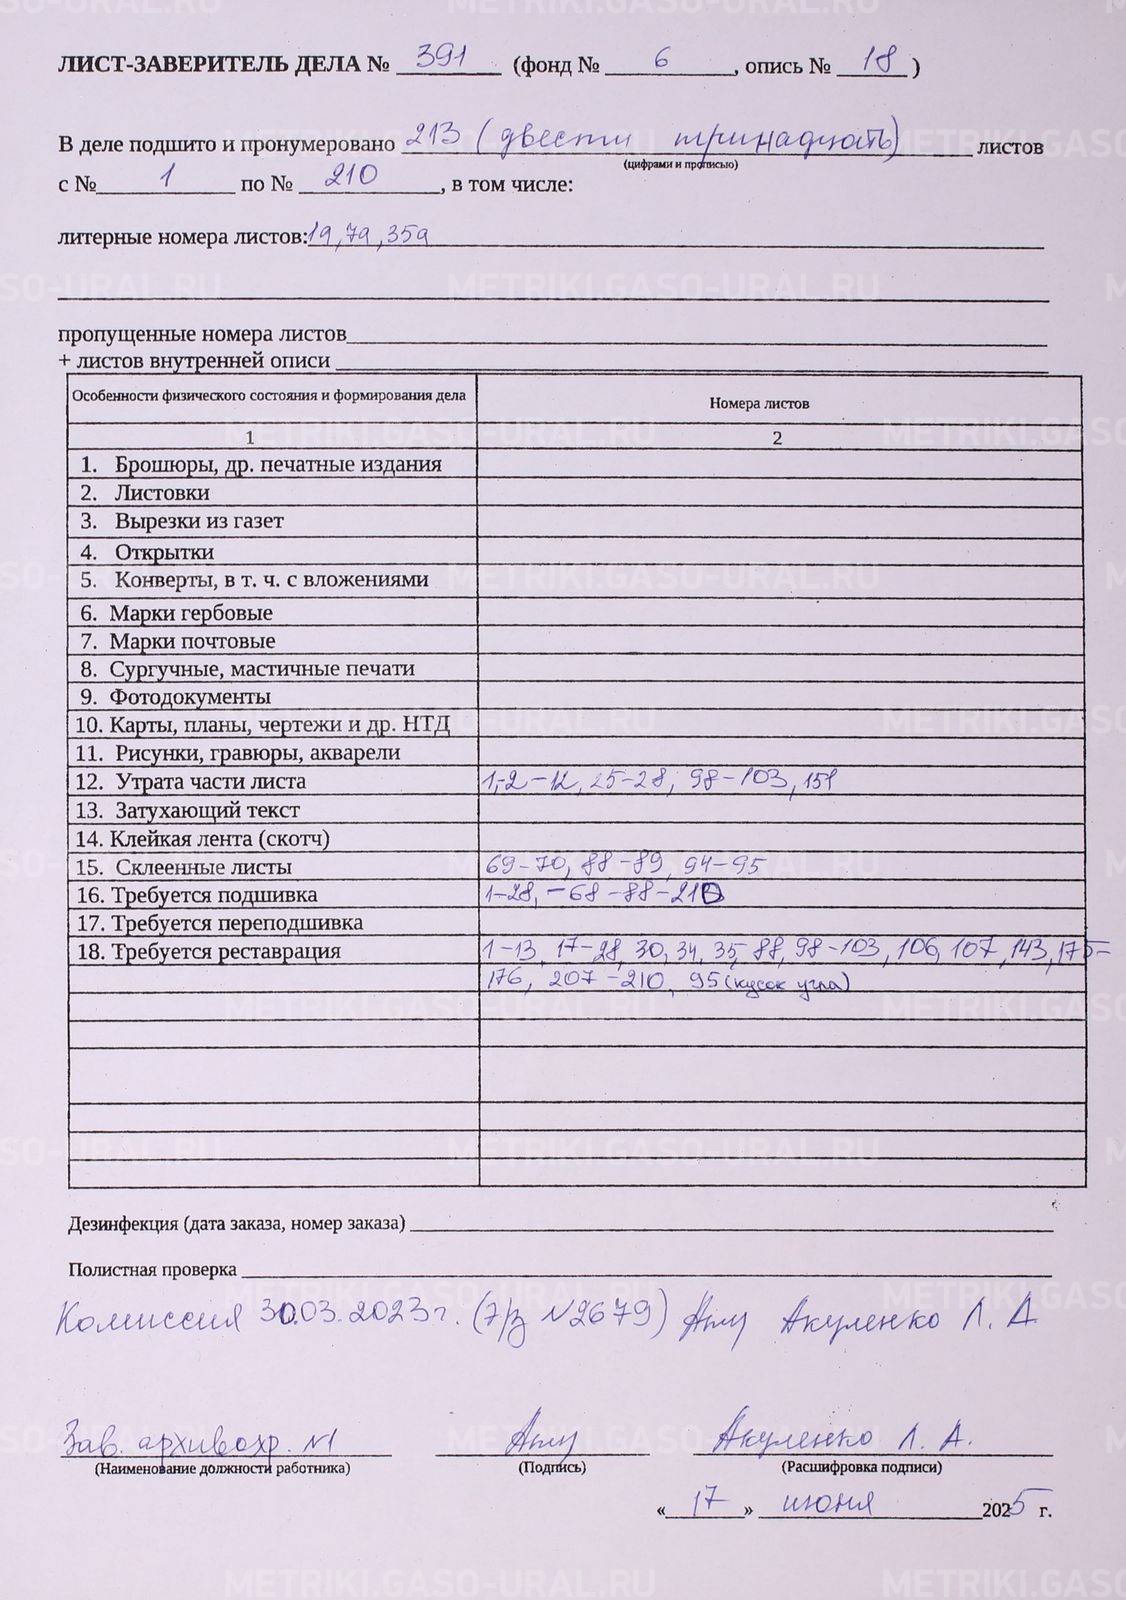 ЛИСТ-ЗАВЕРИТЕЛЬ ДЕЛА № 391 (фонд № 6, опись № 18)
В деле подшито и пронумеровано 213 (двести тринадцать) листов
(цифрами и прописью)
с № 1 по № 210, в том числе:
литерные номера листов: 1а, 7а, 35а
пропущенные номера листов
+ листов внутренней описи
Особенности физического состояния и формирования дела Номера листов
1 2
1. Брошюры, др. печатные издания
2. Листовки
3. Вырезки из газет
4. Открытки
5. Конверты, в т. ч. с вложениями
6. Марки гербовые
7. Марки почтовые
8. Сургучные, мастичные печати
9. Фотодокументы
10. Карты, планы, чертежи и др. НТД
11. Рисунки, гравюры, акварели
12. Утрата части листа 1,-2-12, 25-28, 98-103, 151
13. Затухающий текст
14. Клейкая лента (скотч)
15. Склеенные листы 69-70, 88-89, 94-95
16. Требуется подшивка 1-28, -68-88-210
17. Требуется переподшивка
18. Требуется реставрация 1-13, 17-28, 30, 34, 35, 88, 98-103, 106, 107, 143, 175-
176, 207-210, 95 (кусок угла)
Дезинфекция (дата заказа, номер заказа)
Полистная проверка
Комиссия 30.03.2023г. (т/з №2679) Акуленко Л. А
Зав. архивохр. №1 Акуленко Л. А.
(Наименование должности работника) (Подпись) (Расшифровка подписи)
« 17 » июня 2025 г.
METRIKI.GASO-URAL.RU